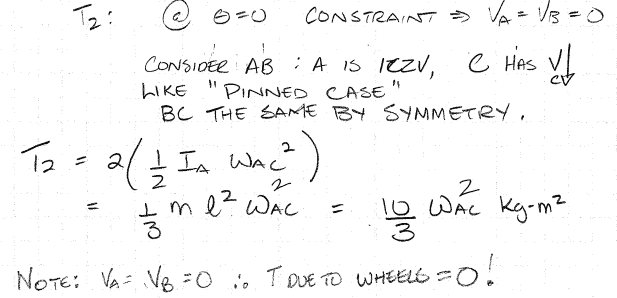 T₂: @ θ=0 CONSTRAINT ⇒ VA = VB = 0
CONSIDER AB : A IS ICZV, C HAS Vc↓
LIKE "PINNED CASE"
BC THE SAME BY SYMMETRY.
T₂ = 2(1/2 IA ωAC²)
= 1/3 m l² ωAC² = 10/3 ωAC² kg-m²
NOTE: VA = VB = 0 ∴ T DUE TO WHEELS = 0!